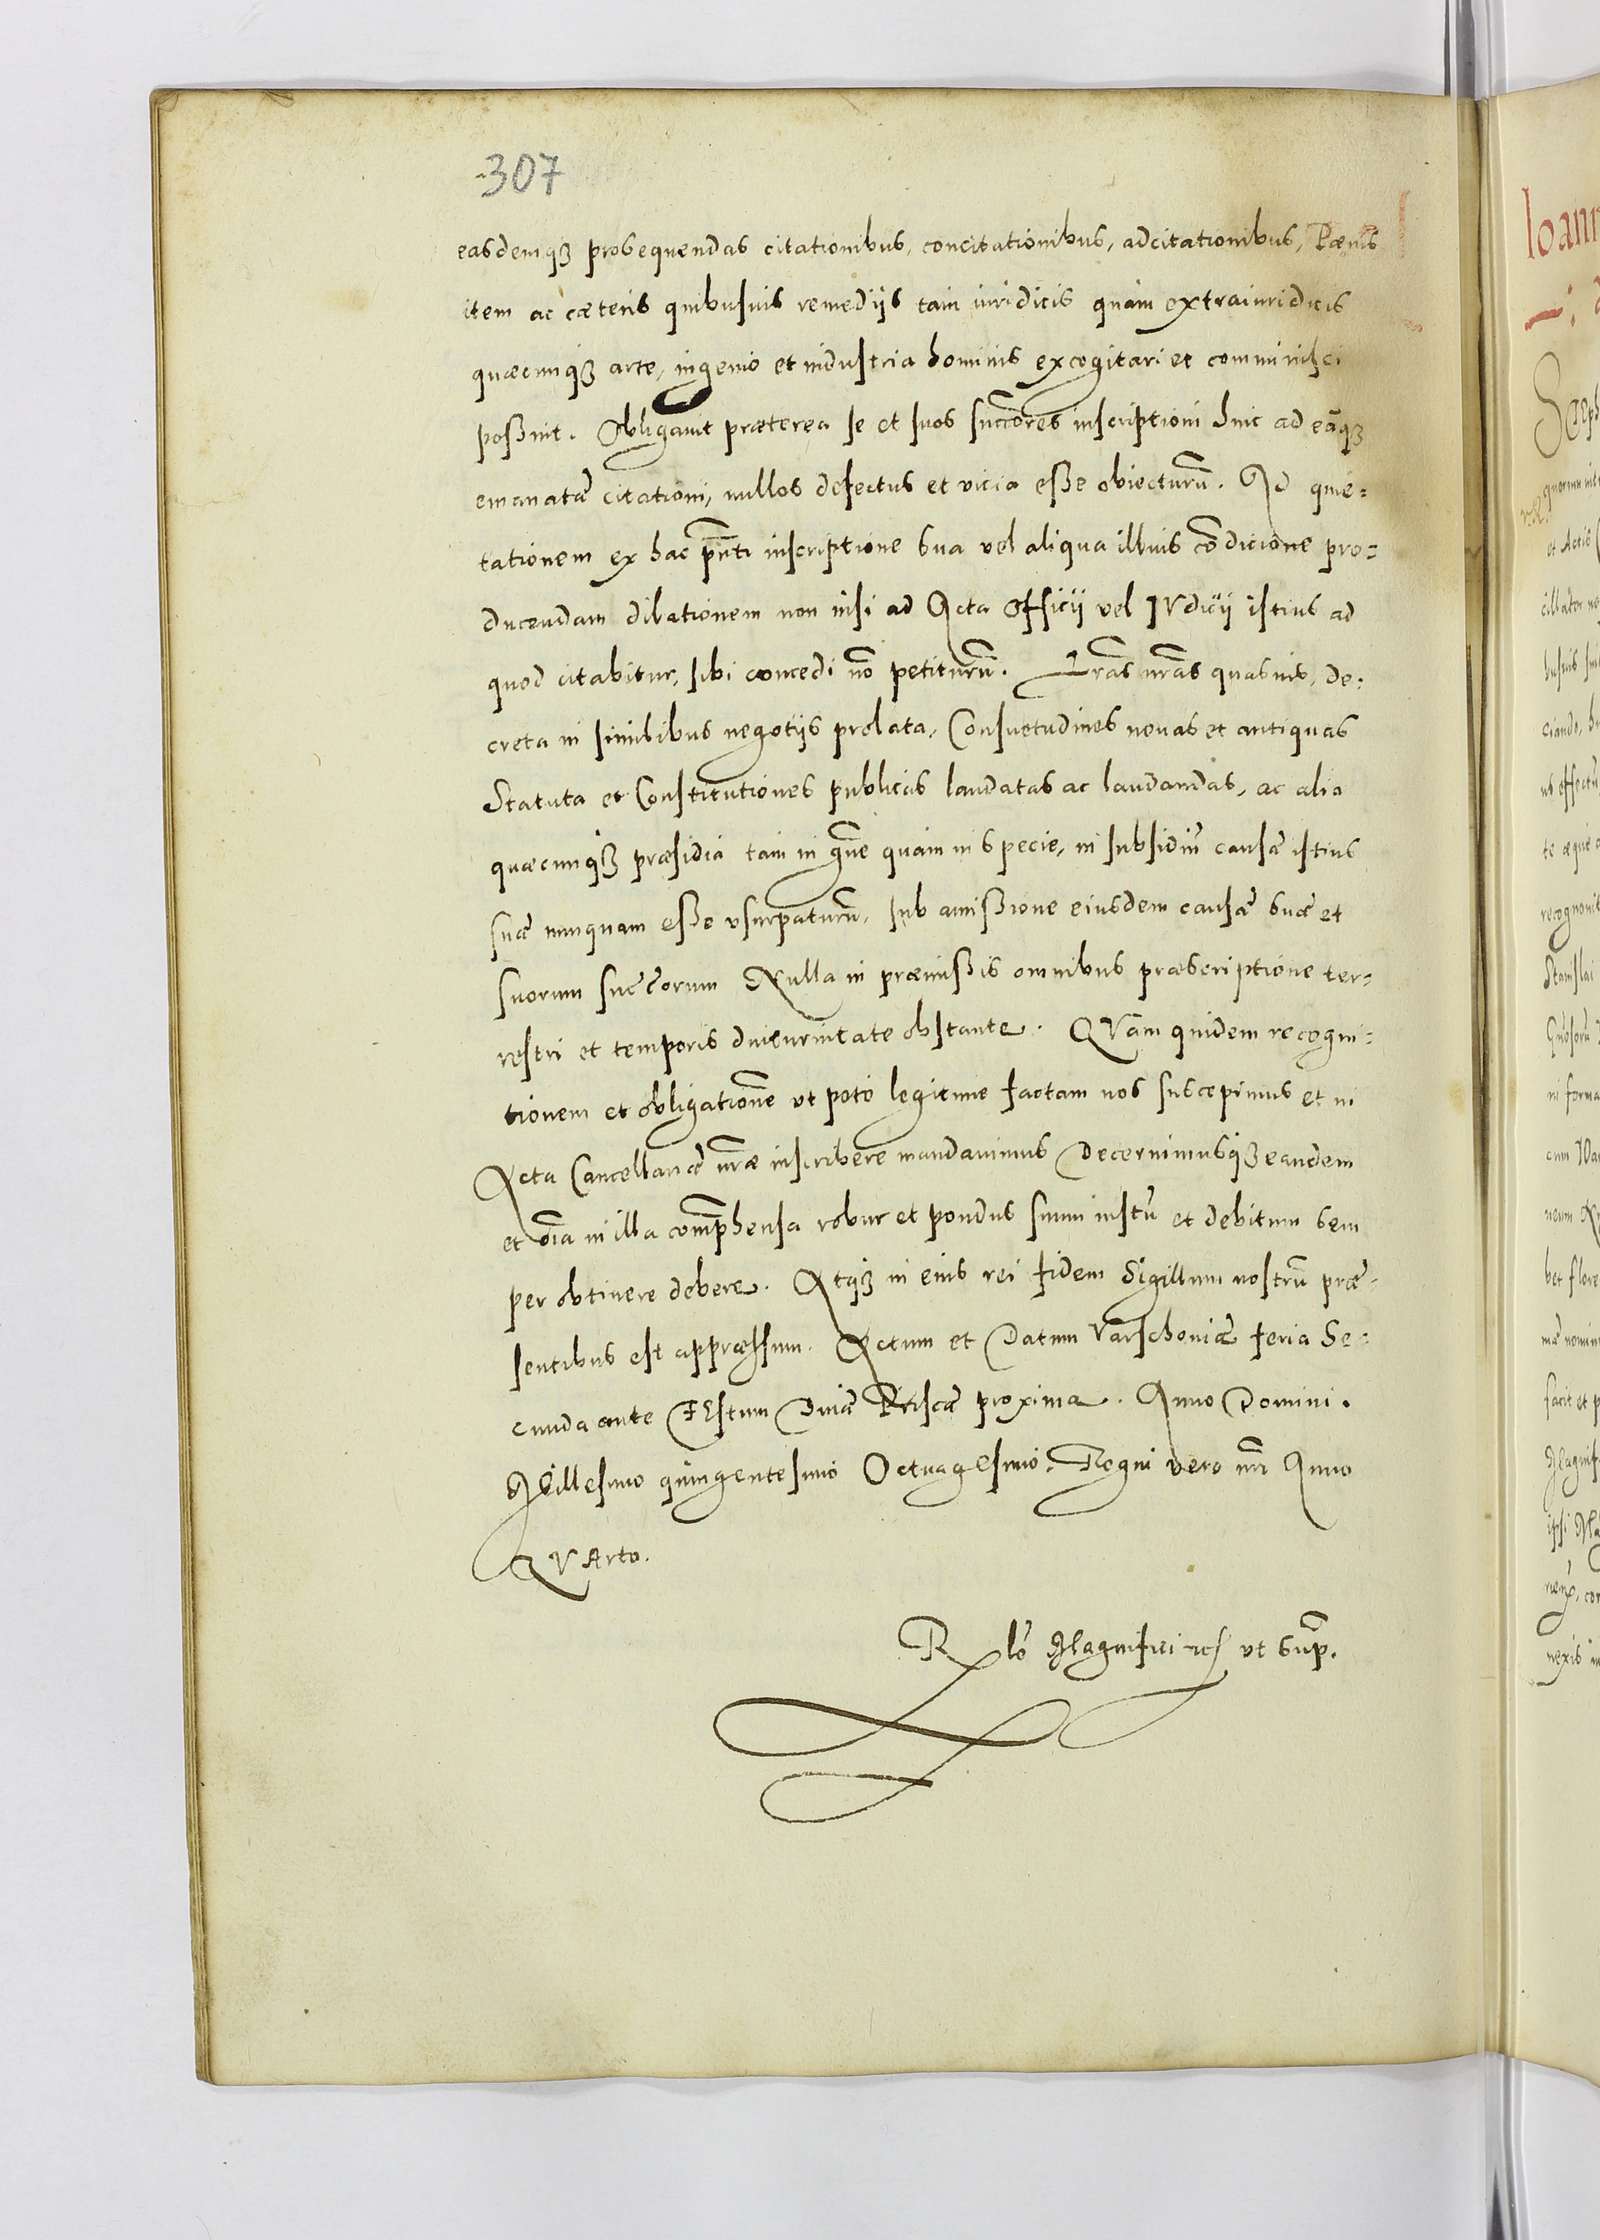 307
easdemqȝ prosequendas citationibus, concitationibus, adcitationibus, Pænis
item ac cæteris quibusuis remedijs tam iuridicis quàm extraiuridicis
quæcunqȝ arte, ingenio et industria hominis excogitari et comminisci
poßint. Obligauit præterea se et suos succ̄ores inscriptioni huic ad eāqȝ
emanatæ citationi, nullos defectus et vicia eße obiecturū. Ad quie-
tationem ex hac pn̄ti inscriptione sua vel aliqua illius cōdicione pro-
ducendam dilationem non nisi ad Acta Officii vel IVdicii istius ad
quod citabitur, sibi concedi nō petiturū. Lr̄as nr̄as quasuis, de-
creta in similibus negotijs prolata, Consuetudines nouas et antiquas
Statuta et Constitutiones publicas laudatas ac laudandas, ac alia
quæcunqȝ præsidia tam in gn̄e quàm in specie, in subsidiū causæ istius
suæ nunquam eße vsurpaturū, sub amißione eiusdem causæ suæ et
suorum succ̄orum Nulla in præmißis omnibus præscriptione ter-
restri et temporis diuturnitate obstante. QVam quidem recogni-
tionem et obligationē vt poto legitime factam nos suscepimus et in
Acta Cancellariæ nr̄æ inscribere mandauimus Decernimusqȝ eandem
et oīa in illa comp̄hensa robur et pondus suum iustū et debitum sem
per obtinere debere. Atqȝ in eius rei fidem Sigillum nostrū præ-
sentibus est appræssum. Actum et Datum Varschouiæ feria Se-
cunda ante FEstum Diuæ Priscæ proxima. Anno Domini.
Millesimo quingentesimo OctuagEsimo. Regni vero nr̄i Anno
QVArto.
Rlō Magnifici etc vt sup̄.